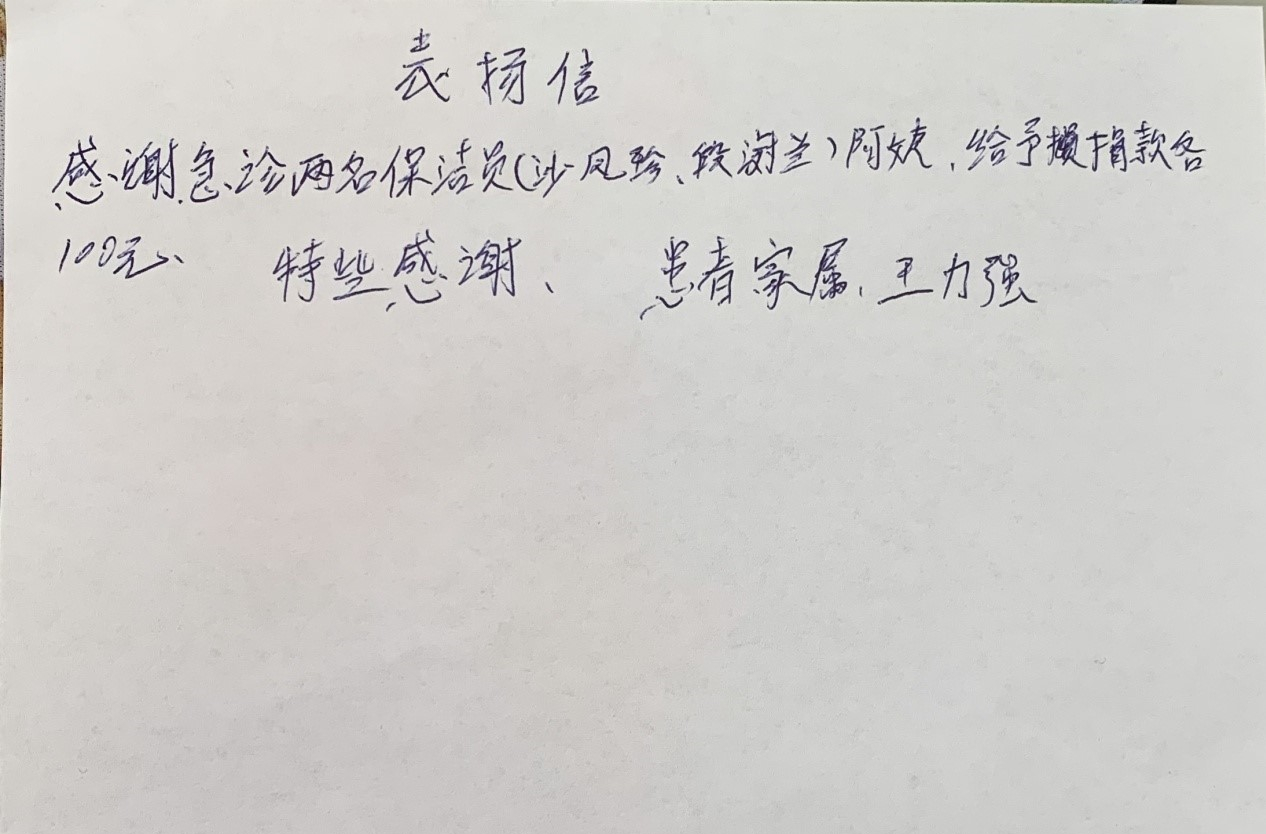 表扬信
感谢急诊两名保洁员(沙凤珍、段谢兰)阿姨,给予损捐款各
100元、 特些感谢、 患者家属、王力强